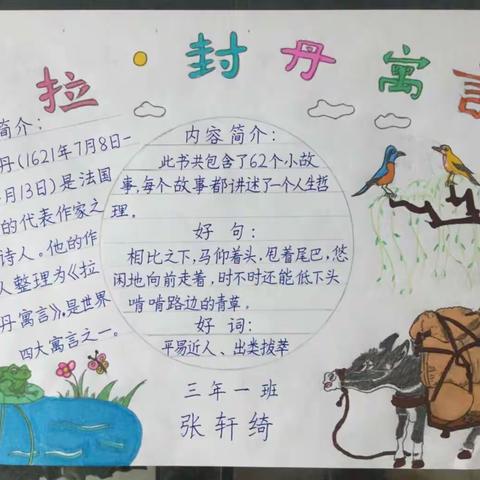 拉·封丹寓言
简介:
丹(1621年7月8日一
月13日)是法国
的代表作家之
诗人。他的作
人整理为《拉
丹寓言》,是世界
四大寓言之一。
内容简介:
此书共包含了62个小故
事,每个故事都讲述了一个人生哲
理。
好句:
相比之下,马仰着头,甩着尾巴,悠
闲地向前走着,时不时还能低下头
啃啃路边的青草。
好词:
平易近人、出类拔萃
三年一班
张轩绮